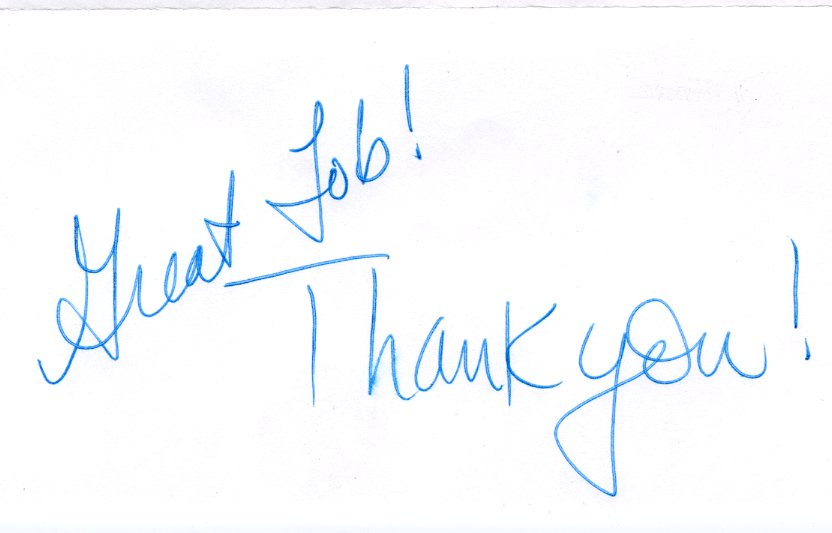 Great Job!
Thank you!